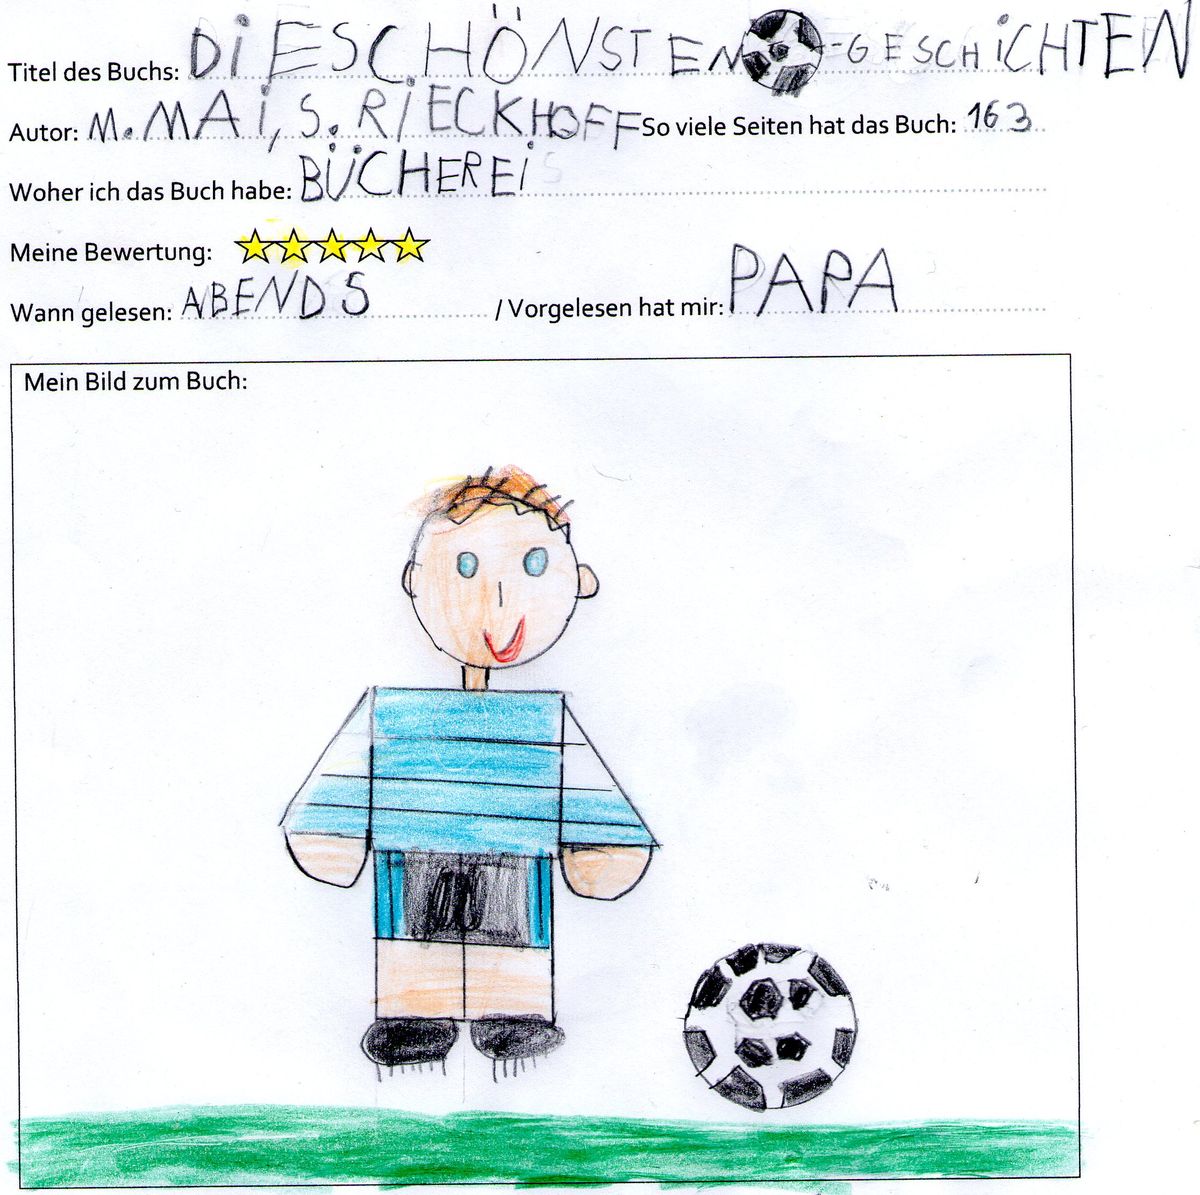 Titel des Buchs: DiE SCHÖNSTEN -GESCHiCHTEN
Autor: M. MAi, S. RiECKHOFF So viele Seiten hat das Buch: 163
Woher ich das Buch habe: BÜCHEREi
Meine Bewertung:
Wann gelesen: ABENDS / Vorgelesen hat mir: PAPA
Mein Bild zum Buch: